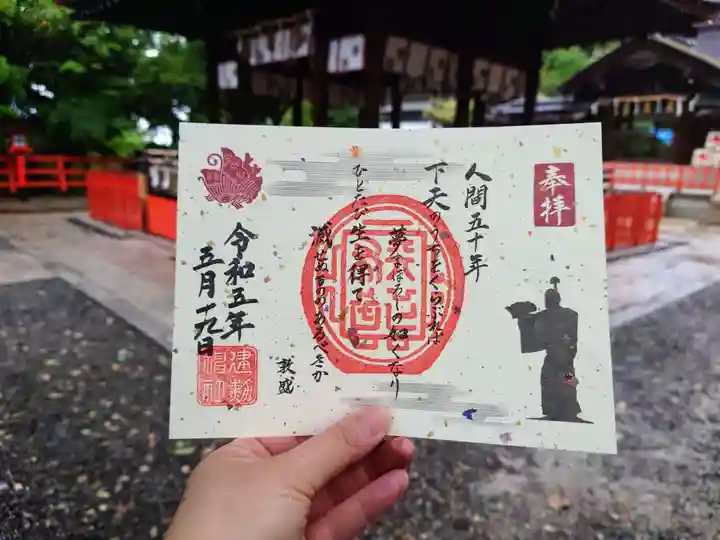 奉拝
人間五十年
下天のうちをくらぶれば
夢まぼろしの如くなり
ひとたび生を得て
滅せぬもののあるべきか
敦盛
令和五年
五月十九日
建勲神社